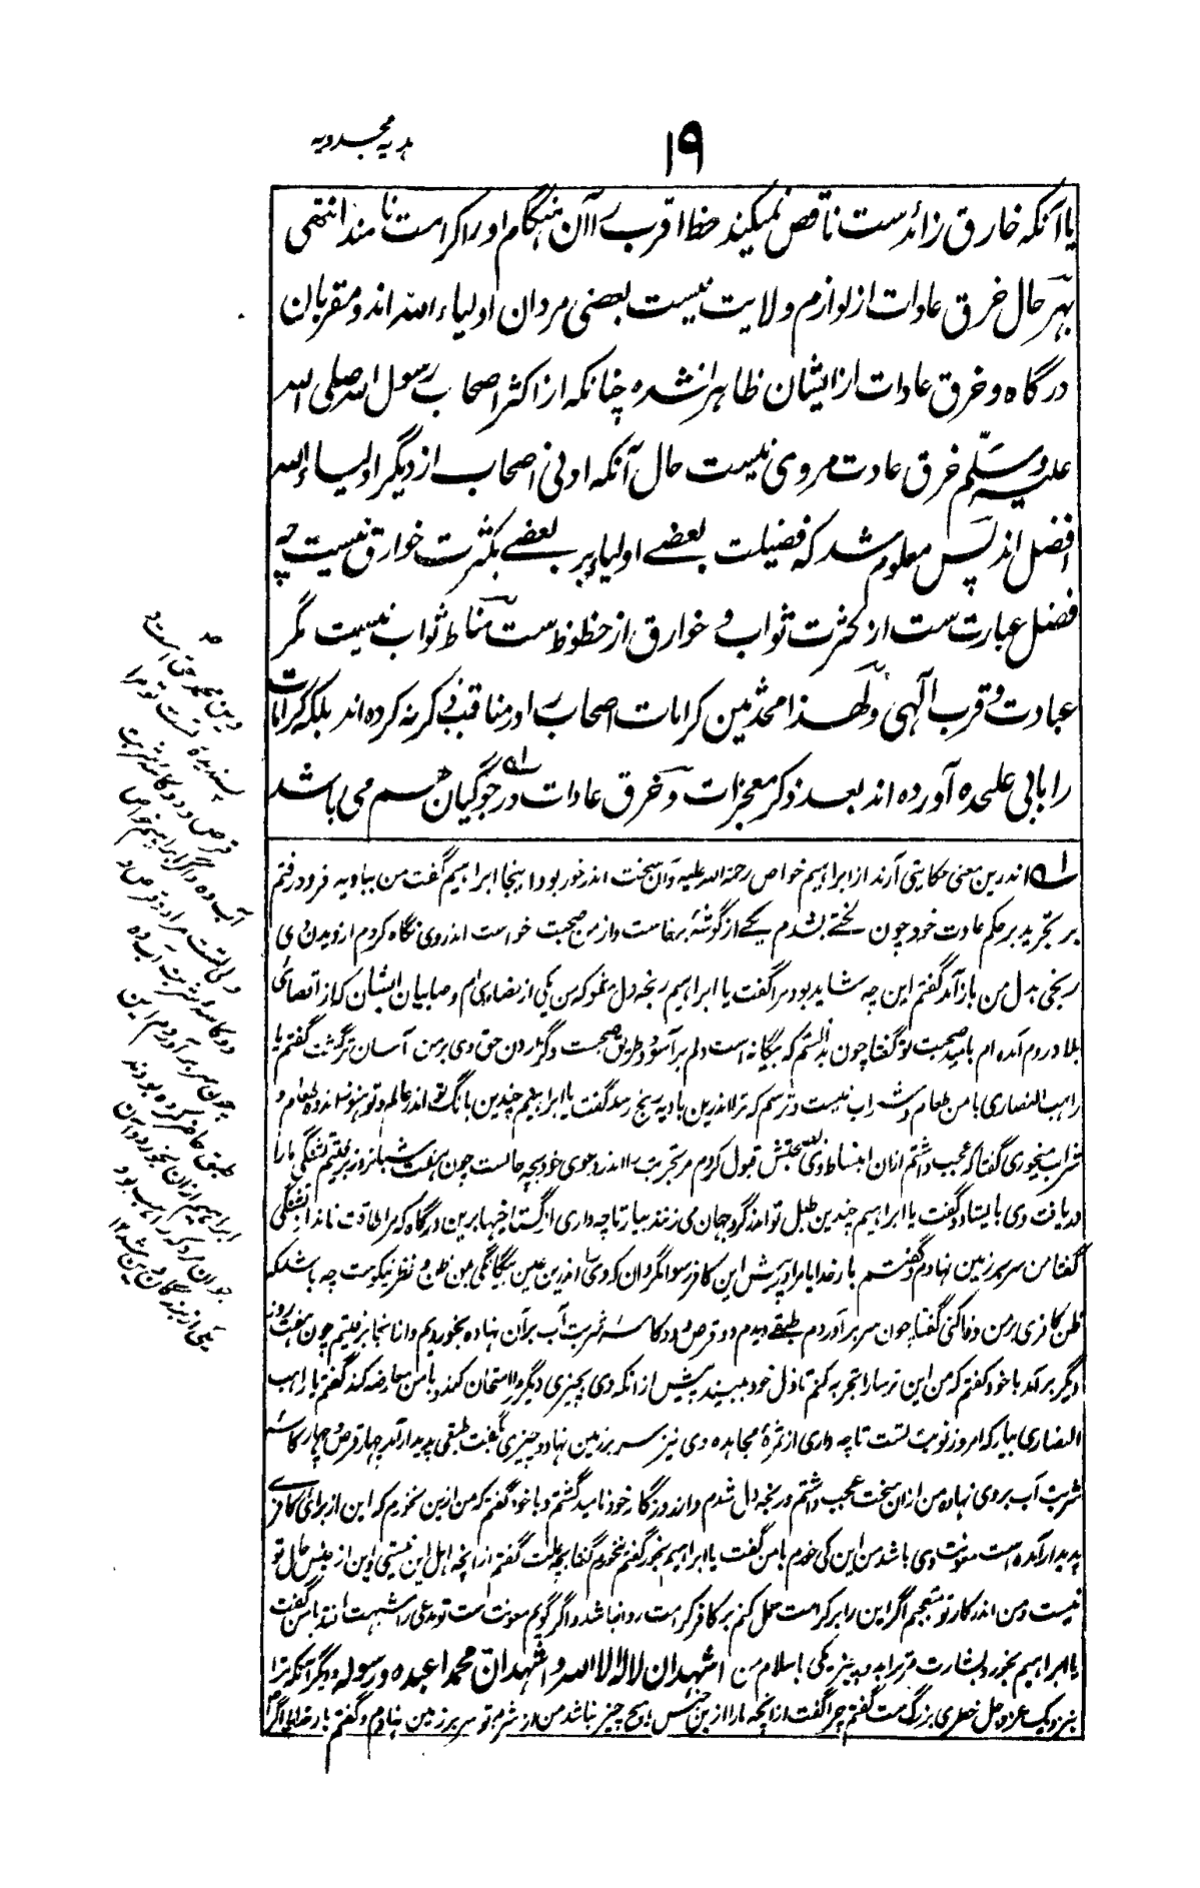 ۱۹
هدیه مجددیه
یا آنکه خارق زائدست ناقص نمیکند حظ اقرب را آن هنگام او را کرامت نامند انتهی
بهرحال خرق عادات از لوازم ولایت نیست بعضی مردان اولیاء الله اند و مقربان
درگاه و خرق عادات ازایشان ظاهر نشده چنانکه از اکثر اصحاب رسول الله صلی الله
علیه وسلم خرق عادت مروی نیست حال آنکه ادنی اصحاب از دیگر اولیاء الله
افضل اند پس معلوم شد که فضیلت بعضے اولیاء بر بعضے بکثرت خوارق نیست چه
فضل عبارت ست از کثرت ثواب و خوارق از حظوظ ست مناط ثواب نیست مگر
عبادت و قرب آلهی و لهذا محدثین کرامات اصحاب را در مناقب ذکر نکرده اند بلکه کرامات
را بابی علیحده آورده اند بعد ذکر معجزات و خرق عادات در جوگیان هم می باشد
اندرین معنی حکایتی آرند از ابراهیم خواص رحمة الله علیه و آن سخت اندر خور بود اینجا ابراهیم گفت من ببادیه فرو رفتم
بر تجرید بر حکم عادت خود چون لختے بشدم یکے از گوشهٔ برخاست و از من صحبت خواست اندر وی نگاه کردم از دیدن وی
رنجی بدل من بازآمد گفتم این چه شاید بود مرا گفت یا ابراهیم رنجه دل مشو که من یکی از نصارای ام و صابیان ایشان که از اقصای
بلاد روم آمده ام بامید صحبت تو گفتا چون بدانستم که بیگانه است دلم برآسود و طریق صحبت و گزاردن حق وی بر من آسان تر گشت گفتم یا
راهب النصاری با من طعام و شراب نیست و ترسم که ترا اندرین بادیه رنج رسد گفت یا ابراهیم چندین بانگ تو اندر عالم و تو هنوز اندوه طعام و
شراب میخوری گفتا که عجب داشتم ازان انبساط وی صحبتش قبول کردم مر تجربت را تا اندر دعوی خود بچه جا است چون هفت شبانروز برفتیم تشنگی ما را
دریافت وی بایستاد و گفت یا ابراهیم چندین طبل تو اندر گرد جهان می زنند بیار تا چه داری از گستاخیها برین درگاه که مرا طاقت نماند از تشنگی
گفتا من سر بر زمین نهادم و گفتم بار خدایا مرا در پیش این کافر رسوا مگردان که وی اندرین عین بیگانگی بمن ظن و نظر نیکوست چه باشد که
ظن کافری بر من وفا کنی گفتا چون سر برآوردم طبقے دیدم دو قرص و دو کاسهٔ شربت آب برآن نهاده بخوردیم و از آنجا برفتیم چون هفت روز
دیگر برآمد با خود گفتم که من این ترسا را تجربه کنم تا ذل خود ببیند پیش از انکه وی بچیزی دیگر مرا امتحان کند و با من معارضه کند گفتم یا راهب
النصاری بیار که امروز نوبت تست تا چه داری از ثمرهٔ مجاهده وی نیز سر بر زمین نهاد و چیزی گفت طبقی پدیدار آمد چهار قرص و چهار کاسهٔ
شربت آب بروی نهاده من ازان سخت عجب داشتم و رنجه دل شدم و از روزگار خود نا امید گشتم و با خود گفتم که من ازین نخورم که این از برای کافرے
پدیدار آمده است معونت وی باشد من این کی خورم با من گفت یا ابراهیم بخور گفتم نخورم گفتا بچه علت گفتم از انچه اهل این نیستی و این از جنس حال تو
نیست و من اندر کار تو متعجبم اگر این را بر کرامت حمل کنم بر کافر کرامت روا نباشد و اگر گویم معونت است تو مدعی را شبهت افتد با من گفت
یا ابراهیم بخور و بشارت مر ترا بدو چیز یکی باسلام من اشهد ان لا اله الا الله و اشهد ان محمدا عبده و رسوله و دیگر آنکه ترا
بنزدیک عز و جل خطری بزرگ ست گفتم چرا گفت از انچه ما را ازین جنس هیچ چیز نباشد من از شرم تو سر بر زمین نهادم و گفتم بار خدایا اگر
دین محمد حق است و
پسندیدهٔ تست تو مرا
دو قرص و دو کاسه شربت
آب ده و اگر ابراهیم خواص
ولی تست مرا دو قرص و
دو کاسه شربت آب ده
چون سر برآوردم این
طبق حاضر کرده بودند
ابراهیم ازان بخورد و این
جوان مرد که راهب بود
یکی از بزرگان دین شد ۱۲